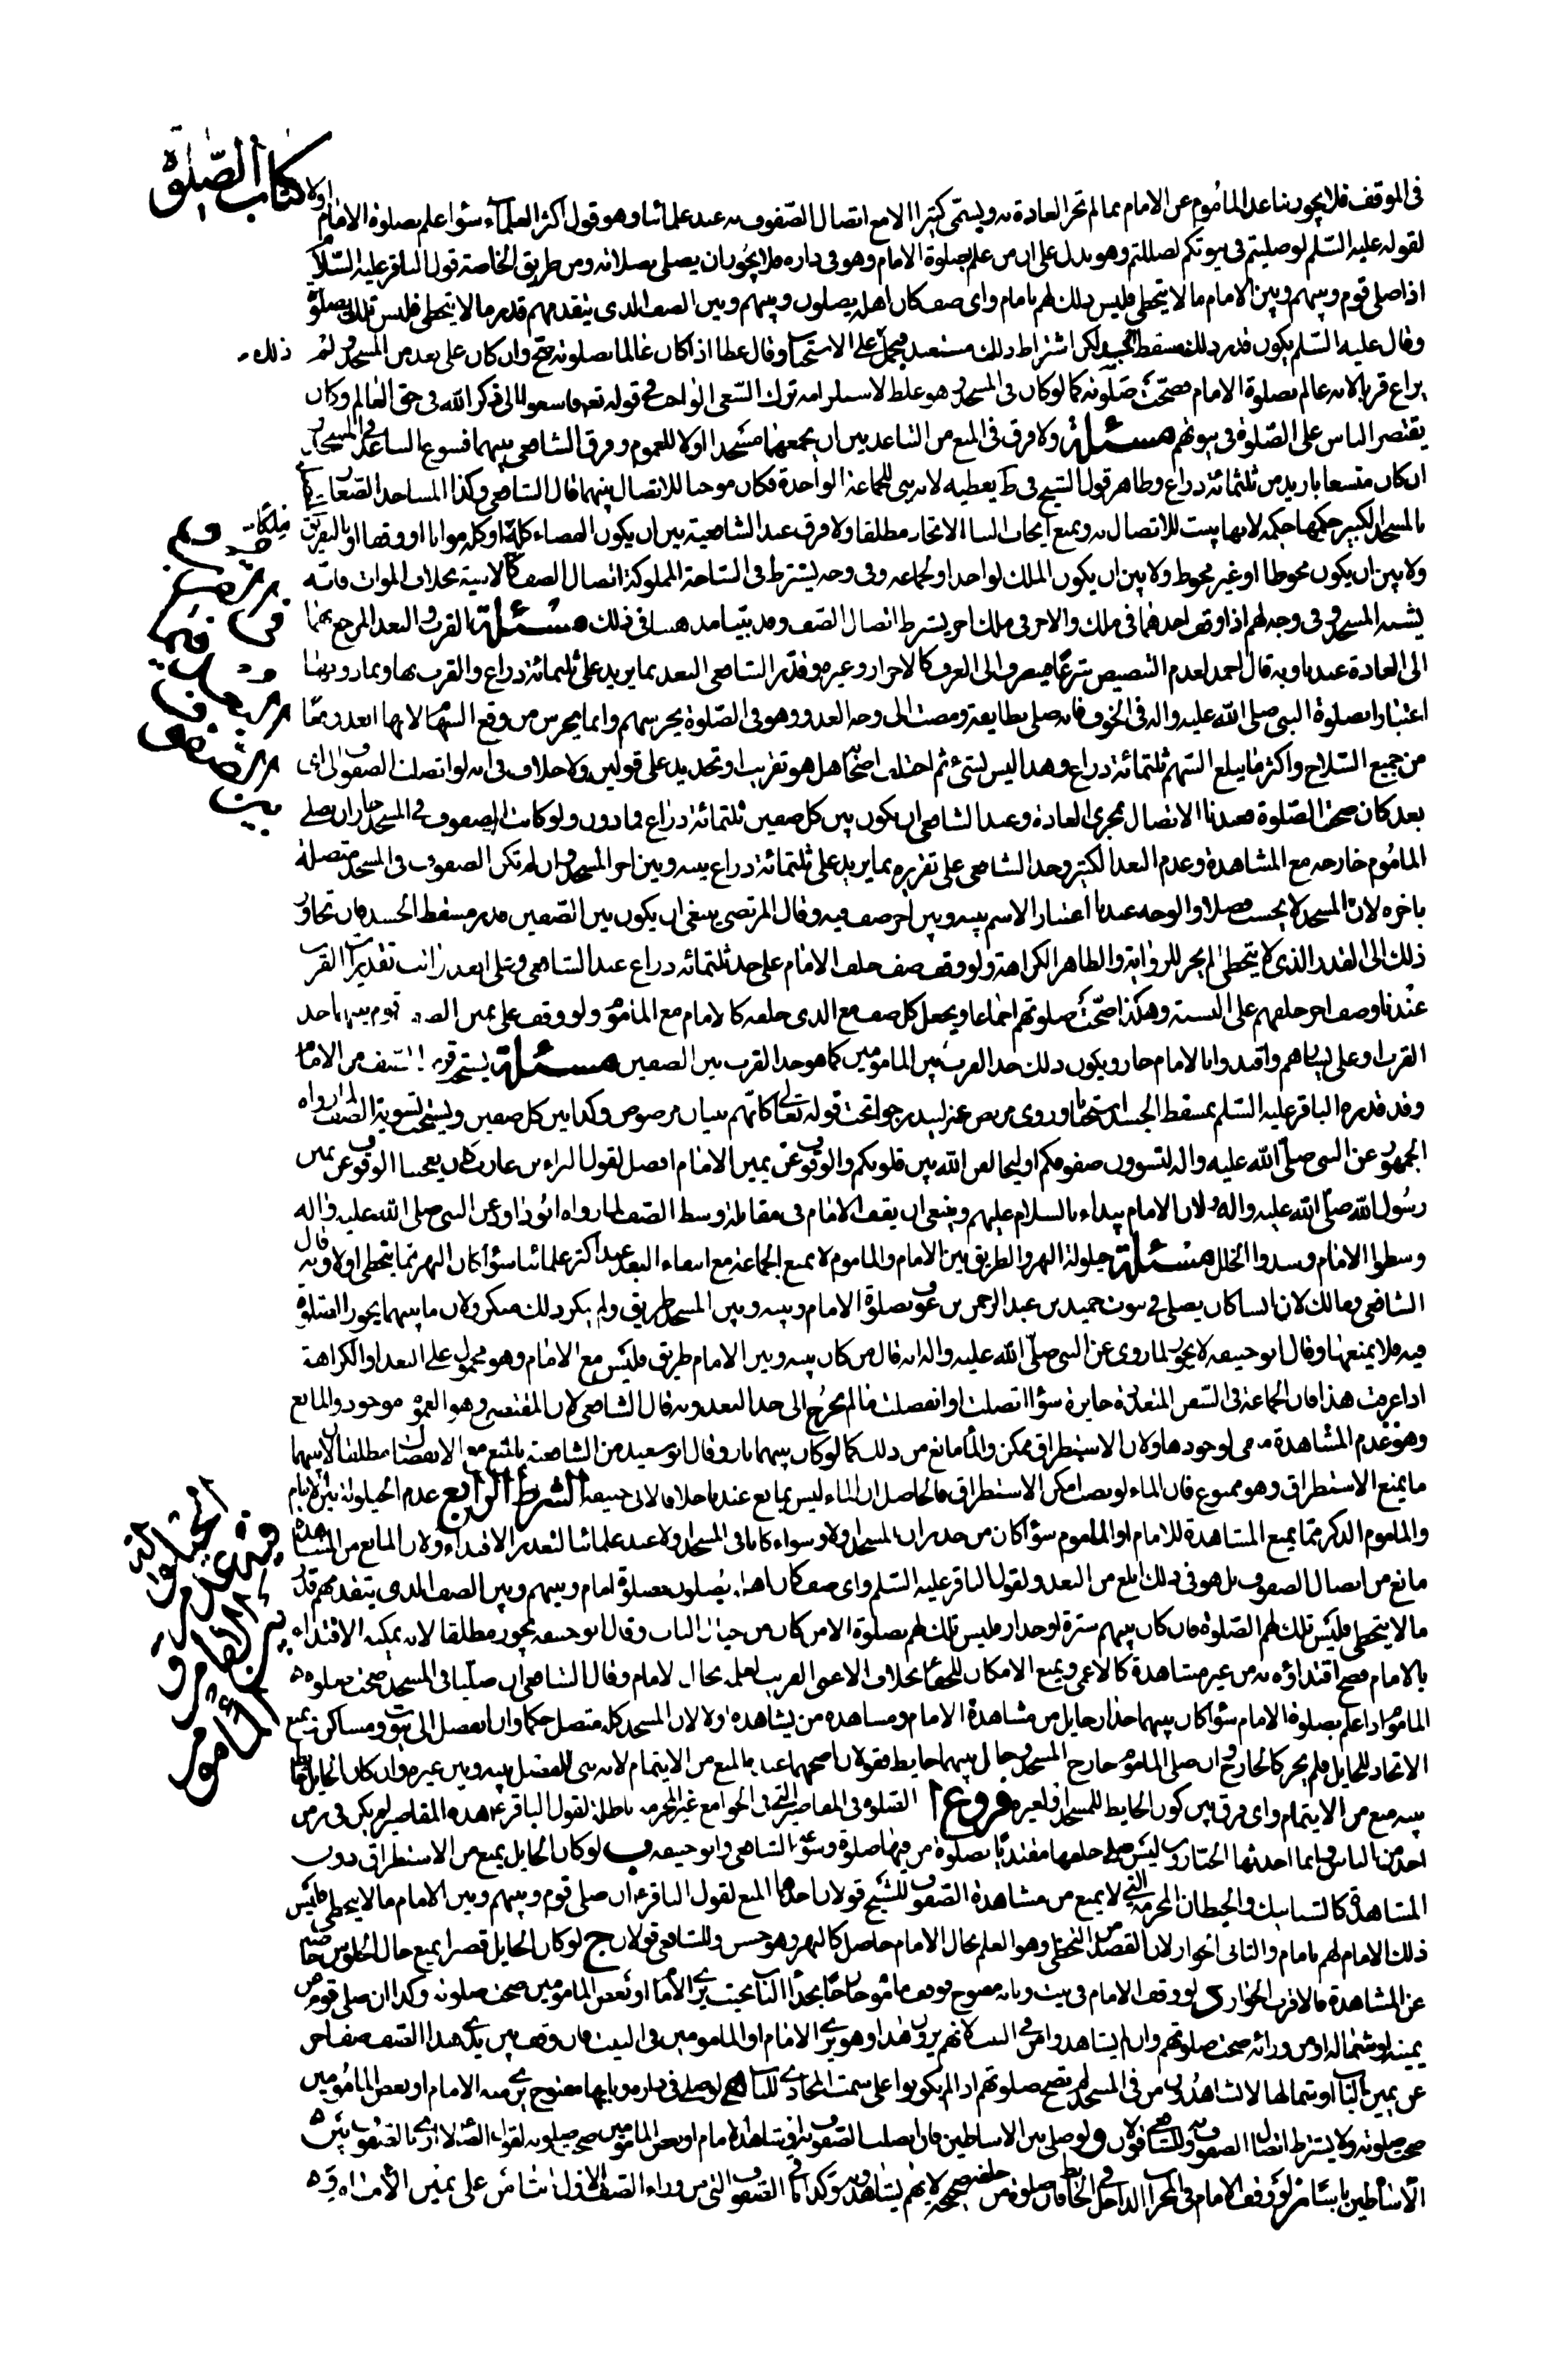 كتاب الصّلوة
في الموقف فلا يجوز تباعد المأموم عن الامام بما لم تجر العادة به ويسمّى كثيرا الا مع اتصال الصّفوف به عند علمائنا وهو قول اكثر العلماء سواء علم بصلوة الامام اولا
لقوله عليه السّلم لو صليتم في بيوتكم لضللتم وهو يدل على ان من علم بصلوة الامام وهو في داره فلا يجوز ان يصلي بصلاته ومن طريق الخاصة قول الباقر عليه السّلام
اذا صلى قوم وبينهم وبين الامام ما لا يتخطى فليس ذلك لهم بامام واى صف كان اهله يصلون وبينهم وبين الصف الذى يتقدمهم قدر ما لا يتخطى فليس تلك بصلوة
وقال عليه السّلم يكون قدر ذلك مسقط الجسد لكن اشتراط ذلك مستبعد فيحمل على الاستحباب وقال عطا اذا كان عالما بصلوته صح وان كان على بعد من المسجد ولم
ذلك
يراع قربا لانه عالم بصلوة الامام فصحّت صلوته كما لو كان في المسجد وهو غلط لاستلزامه ترك السّعى الواجب في قوله تعه فاسعوا الى ذكر الله في حق العالم وكان
يقتصر الناس على الصّلوة في بيوتهم مسئلة ولا فرق في المنع من التباعد بين ان يجمعهما مسجد اولا للعموم وفرق الشافعي بينهما فسوغ التباعد في المسجد
ان كان متسعا بازيد من ثلثمائة ذراع وظاهر قول الشيخ في ط يعطيه لانه بني للجماعة الواحدة فكان موجبا للاتصال بينهما قال الشافعي وكذا المساجد الصغار
بالمسجد الكبير حكمها حكمه لانها بنيت للاتصال به ونمنع ايجاب البناء الاتحاد مطلقا ولا فرق عند الشافعية بين ان يكون الفضاء كله او كله مواتا او وقفا او بالتفريق
ولا بين ان يكون محوطا او غير محوط ولا بين ان يكون الملك لواحد او لجماعه وفي وجه يشترط في الساحة المملوكة اتصال الصف كالابنية بخلاف الموات فانه
يشبه المسجد وفي وجه لهم اذا وقف احدهما في ملك والاخر في ملك اخر يشترط اتصال الصّف وقد بيّنا مذهبنا في ذلك مسئلة القرب والبعد المرجع بهما
الى العادة عندنا وبه قال احمد لعدم التنصيص شرعا فيصرف الى العرف كالاحراز وغيره وقدّر الشافعي البعد بما يزيد على ثلثمائة ذراع والقرب بها وبما دونها
اعتبارا بصلوة النبي صلى الله عليه واله في الخوف فانه صلى بطايفة ومضت الى وجه العدو وهو في الصّلوة يحرسهم وانما يحرس من وقع السّهام لانها ابعد وقعا
من جميع السّلاح واكثر ما يبلع السّهم ثلثمائة ذراع وهذا ليس بشئ ثم اختلف اصحابه هل هو تقريب او تحديد على قولين ولا خلاف في انه لو اتصلت الصفوف الى اى
بعد كان صحت الصّلوة فعندنا الاتصال بمجرى العادة وعند الشافعي ان يكون بين كل صفين ثلثمائة ذراع فما دون ولو كانت الصفوف في المسجد جاز ان يصلي
المأموم خارجه مع المشاهدة وعدم البعد الكثير وحد الشافعي على تقريره بما يزيد على ثلثمائة ذراع بينه وبين اخر المسجد وان لم تكن الصفوف في المسجد متصلة
باخره لان المسجد لا يحسب فصلا والوجه عندنا اعتبار الاسم بينه وبين اخر صف فيه وقال المرتضى ينبغى ان يكون بين الصّفين قدر مسقط الجسد فان تجاوز
ذلك الى القدر الذى لا يتخطى لم يجز للرواية والظاهر الكراهة ولو وقف صف خلف الامام على حد ثلثمائه ذراع عند الشافعي وعلى ابعد مراتب تقدير القرب
عندنا وصف اخر خلفهم على النسبة وهكذا صحّت صلوتهم اجماعا ويجعل كل صف مع الذى خلفه كالامام مع المأموم ولو وقف على يمين الصف قوم بينهما حد
القرب او على يسارهم واقتدوا بالامام جاز ويكون ذلك حد القرب بين المأمومين كما هو حد القرب بين الصفين مسئلة يستحب قرب الصّف من الامام
وقد قدره الباقر عليه السّلم بمسقط الجسد استحبابا وروى مربض عنز ليندرجوا تحت قوله تعالى كانّهم بنيان مرصوص وكذا بين كل صفين ويستحب تسوية الصّف لما رواه
الجمهور عن النبي صلى الله عليه واله لتسوون صفوفكم او ليخالفن الله بين قلوبكم والوقوف عن يمين الامام افضل لقول البراء بن عازب كان يعجبنا الوقوف عن يمين
رسول الله صلى الله عليه واله ولان الامام يبداء بالسلام عليهم وينبغى ان يقف الامام في مقابلة وسط الصّف لما رواه ابو داود عن النبي صلى الله عليه واله
وسطوا الامام وسدوا الخلل مسئلة حيلولة النهر والطريق بين الامام والمأموم لا يمنع الجماعة مع انتفاء البعد عند اكثر علمائنا سواء كان النهر مما يتخطى اولا وبه قال
الشافعي ومالك لان انسا كان يصلي في بيوت حميد بن عبد الرحمن بن عوف بصلوة الامام وبينه وبين المسجد طريق ولم ينكر ذلك منكر ولان ما بينهما يجوز الصلوة
فيه فلا يمنعها وقال ابو حنيفه لا يجوز لما روى عن النبي صلى الله عليه واله انه قال من كان بينه وبين الامام طريق فليس مع الامام وهو محمول على البعد او الكراهة
اذا عرفت هذا فان الجماعة في السّفن المتعدّدة جايزة سواء اتصلت او انفصلت ما لم يخرج الى حد البعد وبه قال الشافعي لان المقتضى وهو العموم موجود والمانع
وهو عدم المشاهدة منفى لوجودها ولان الاستطراق ممكن والماء مانع من ذلك كما لو كان بينهما نار وقال ابو سعيد من الشافعية بالمنع مع الانفصال مطلقا لان بينهما
ما يمنع الاستطراق وهو ممنوع فان الماء لو نضب امكن الاستطراق فالحاصل ان الماء ليس بمانع عندنا خلافا لابي حنيفه الشرط الرابع عدم الحيلولة بين الامام
والمأموم الذكر بما يمنع المشاهدة للامام او المأموم سواء كان من جدران المسجد اولا وسواء كانا في المسجد اولا عند علمائنا لتعذر الاقتداء ولان المانع من المشاهدة
مانع من اتصال الصفوف بل هو في ذلك ابلغ من البعد ولقول الباقر عليه السّلم واى صف كان اهله يصلون بصلوة امام وبينهم وبين الصف الذى يتقدمهم قدر
ما لا يتخطى فليس تلك لهم الصّلوة فان كان بينهم سترة او جدار فليس تلك لهم بصلوة الا من كان من حيال الباب وقال ابو حنيفه يجوز مطلقا لانه يمكنه الاقتداء
بالامام فصح اقتداؤه به من غير مشاهدة كالاعمى ويمنع الامكان للخفاء بخلاف الاعمى القريب لعلمه بحال الامام وقال الشافعي ان صلّيا في المسجد صحت صلوة
المأموم اذا علم بصلوة الامام سواء كان بينهما جدار حايل من مشاهدة الامام ومشاهدة من يشاهده اولا لان المسجد كله متصل حكما وان انفصل الى بيوت ومساكن ويمنع
الاتحاد للحايل فلم يجز كالخارج وان صلى المأموم خارج المسجد وحال بينهما حايط فقولان اصحهما عنده المنع من الايتمام لانه بنى للفصل بينه وبين غيره وان كان الحايل حايط
بيته منع من الايتمام واى فرق بين كون الحايط للمسجد او لغيره فروع ا الصّلوة في المقاصير التي في الجوامع غير المخرمه باطلة لقول الباقر ع هذه المقاصير لم يكن في زمن
احد من الناس وانما احدثها الجبّارون ليس لمن صلى خلفها مقتديا بصلوة من فيها صلوة وسوّغه الشافعي وابو حنيفه ب لو كان الحايل يمنع من الاستطراق دون
المشاهدة كالشبابيك والحيطان المخرمه التي لا يمنع من مشاهدة الصّفوف للشيخ قولان احدهما المنع لقول الباقر ع ان صلى قوم وبينهم وبين الامام ما لا يتخطى فليس
ذلك الامام لهم بامام والثاني الجواز لان القصد من التخطى وهو العلم بحال الامام حاصل كالنهر وهو حسن وللشافعي قولان ج لو كان الحايل قصيرا يمنع حال الجلوس خاصة
عن المشاهدة فالاقرب الجواز د لو وقف الامام في بيت وبابه مفتوح فوقف مأموم خارجا بحذاء الباب بحيث يرى الامام او بعض المأمومين صحت صلوته وكذا ان صلى قوم من
يمينه او شماله او من ورائه صحت صلوتهم وان لم يشاهدوا من في البيت لانهم يرون هذا وهو يرى الامام او المأمومين في البيت فان وقف بين يدى هذا الصف صف اخر
عن يمين الباب او شمالها لا يشاهدون من في المسجد لم تصح صلوتهم اذا لم يكونوا على سمت المحاذى للباب ه لو صلى في داره وبابها مفتوح يرى منه الامام او بعض المأمومين
صحت صلوته ولا يشترط اتصال الصفوف به وللشافعي قولان و لو صلى بين الاساطين فان اتصلت الصّفوف به او شاهد الامام او بعض المأمومين صحت صلوته لقول الصّ لا ارى بالصفوف بين
الاساطين باسا ز لو وقف الامام في المحراب الداخل في الحايط فان صلوة من خلفه صحيحة لانهم يشاهدونه وكذا باقي الصّفوف التى من وراء الصّف الاول اما من على يمين الامام